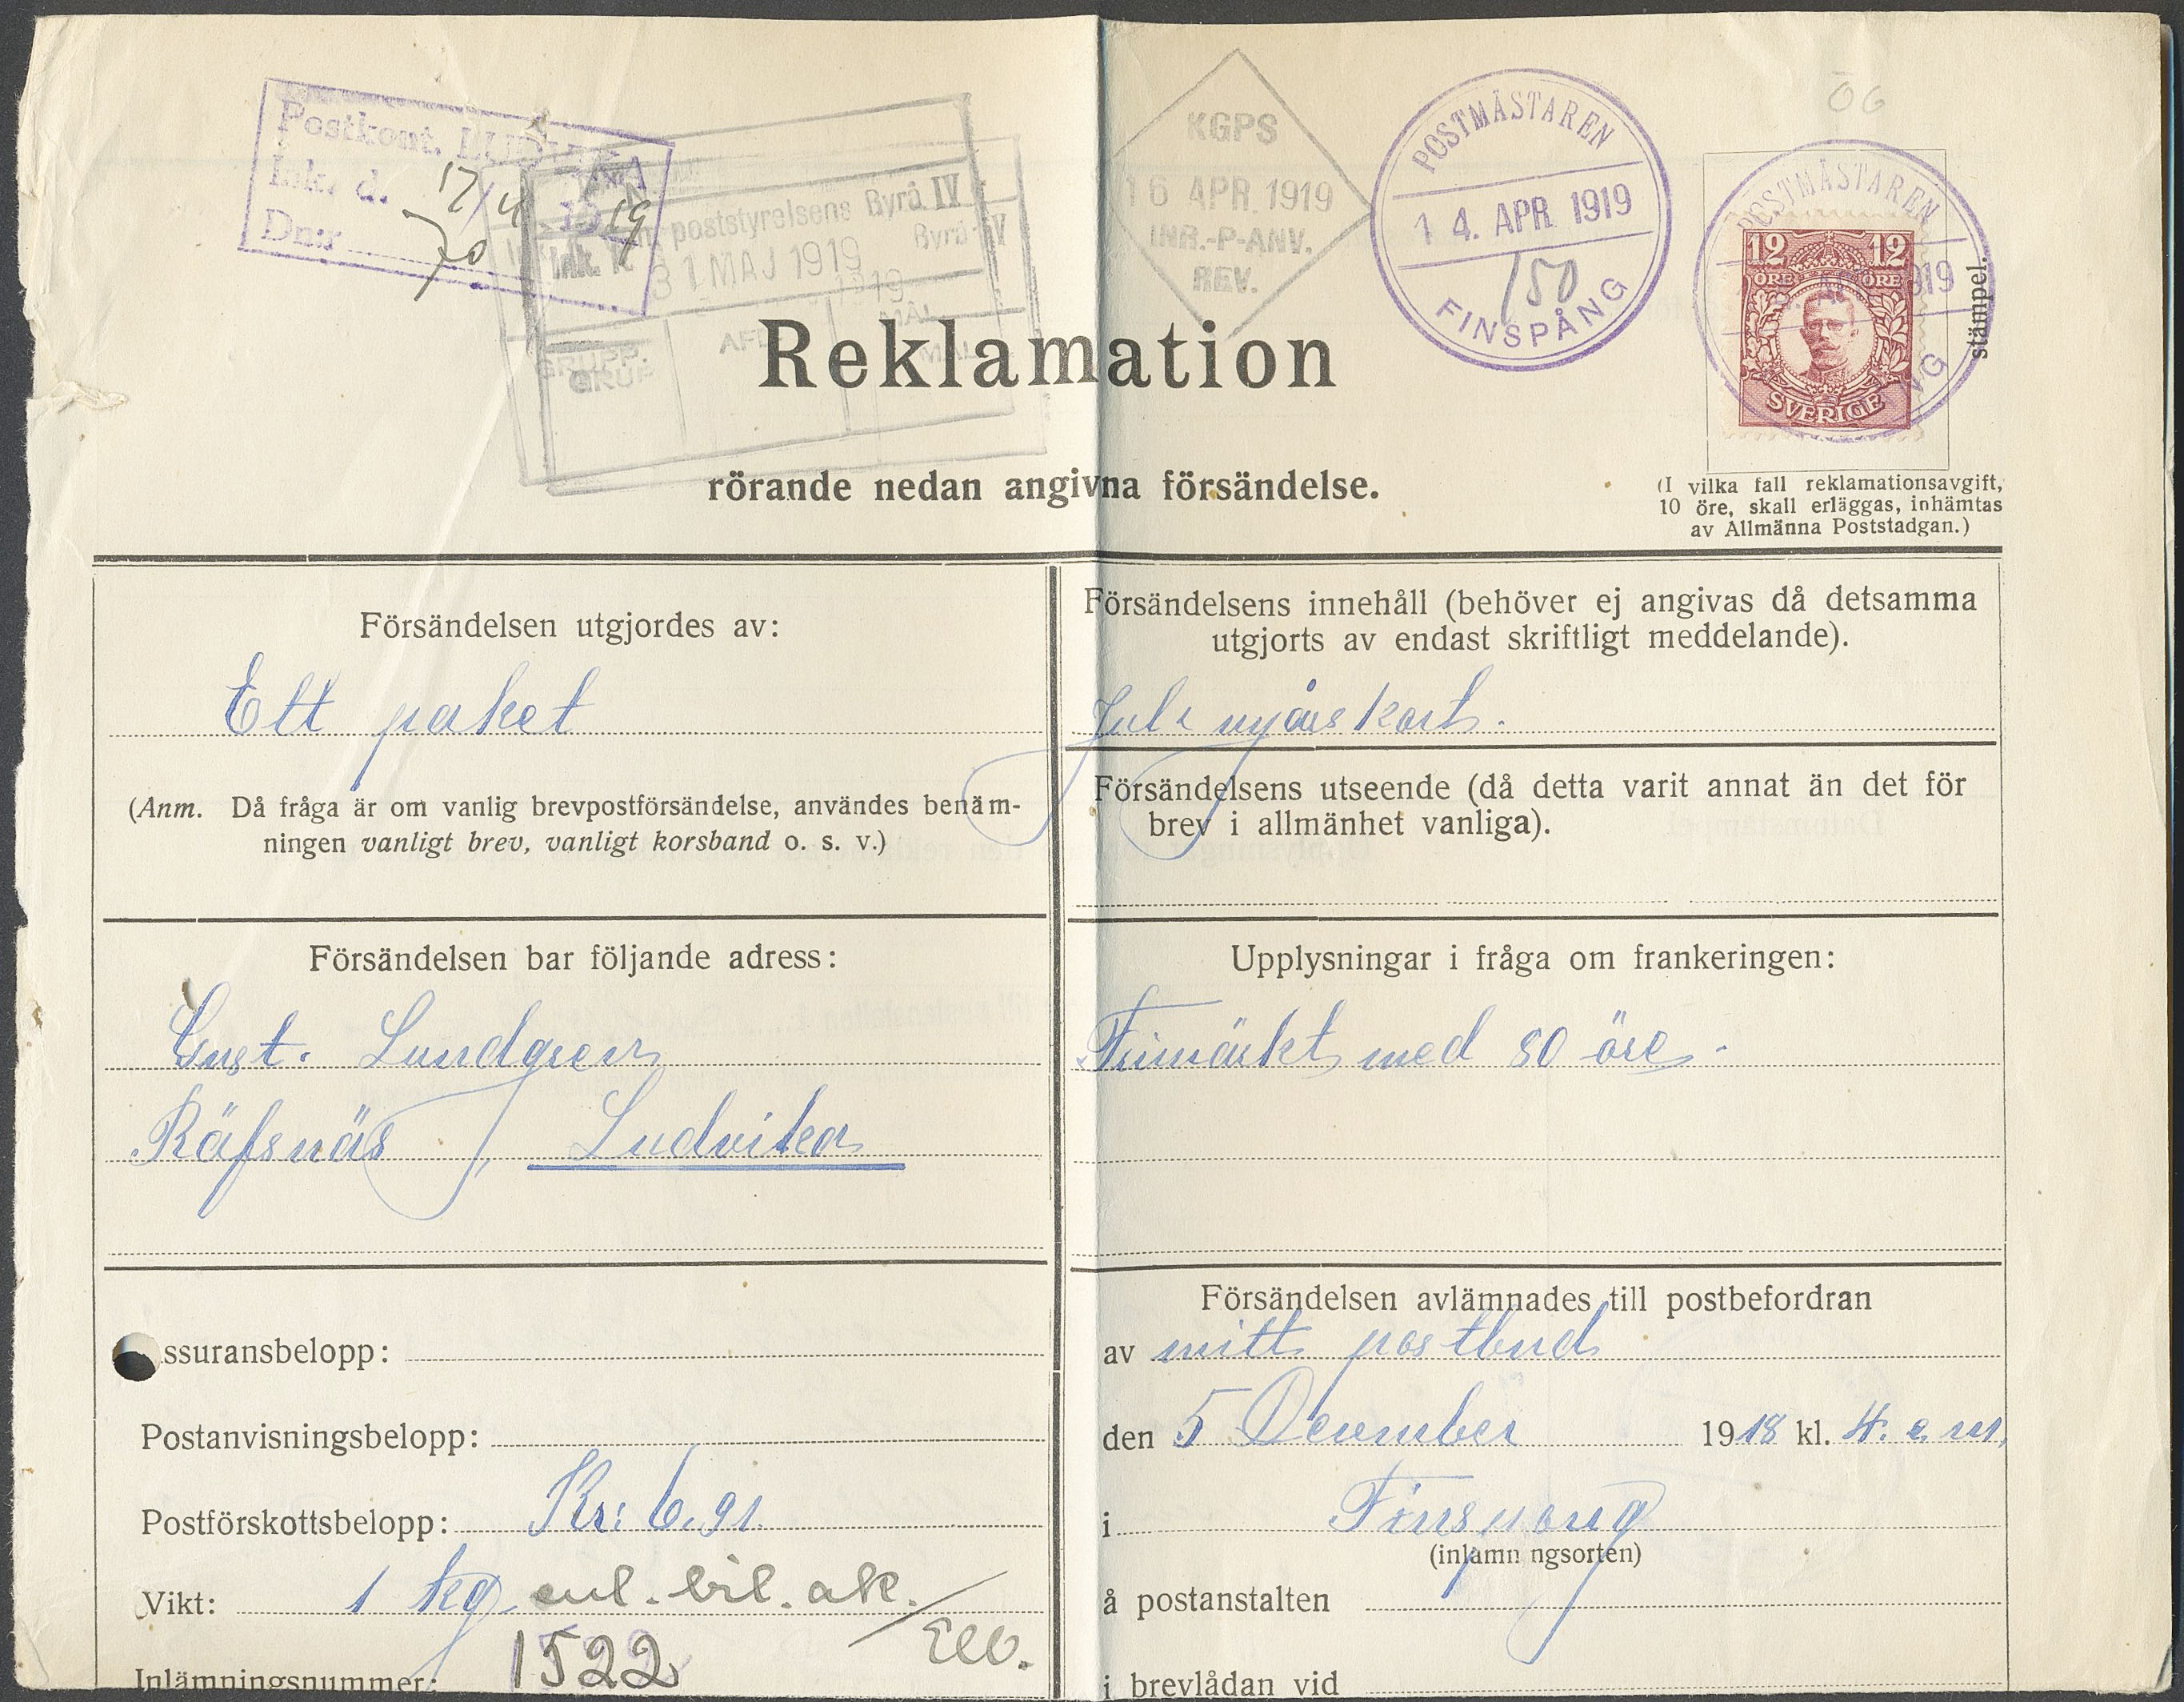 Postkont. LUDVIKA
Ink. d. 17/4 1919
Dnr 70
poststyrelsens Byrå IV
Byrå IV
Ink.
31 MAJ 1919
1919
GRUPP. AFD. MÅL
GRUPP MÅL
KGPS
16 APR. 1919
INR.-P-ANV.
REV.
POSTMÄSTAREN
14. APR. 1919
150
FINSPÅNG
ÖG
POSTMÄSTAREN
12 12
ÖRE ÖRE
1919
SVERIGE
stämpel.
Reklamation
rörande nedan angivna försändelse.
(I vilka fall reklamationsavgift,
10 öre, skall erläggas, inhämtas
av Allmänna Poststadgan.)
Försändelsen utgjordes av:
Ett paket
(Anm. Då fråga är om vanlig brevpostförsändelse, användes benäm-
ningen vanligt brev, vanligt korsband o. s. v.)
Försändelsen bar följande adress:
Ernst. Lundgren
Räfsnäs, Ludvika
ssuransbelopp:
Postanvisningsbelopp:
Postförskottsbelopp: Kr: 6.91
Vikt: 1 kg enl. bil. ak.
Inlämningsnummer: 1522
Försändelsens innehåll (behöver ej angivas då detsamma
utgjorts av endast skriftligt meddelande).
Jul & nyårskort.
Försändelsens utseende (då detta varit annat än det för
brev i allmänhet vanliga).
Upplysningar i fråga om frankeringen:
Frimärkt med 80 öre.
Försändelsen avlämnades till postbefordran
av mitt postbud
den 5 December 1918 kl. 4. e. m.
i Finspong
(inlämningsorten)
å postanstalten
i brevlådan vid